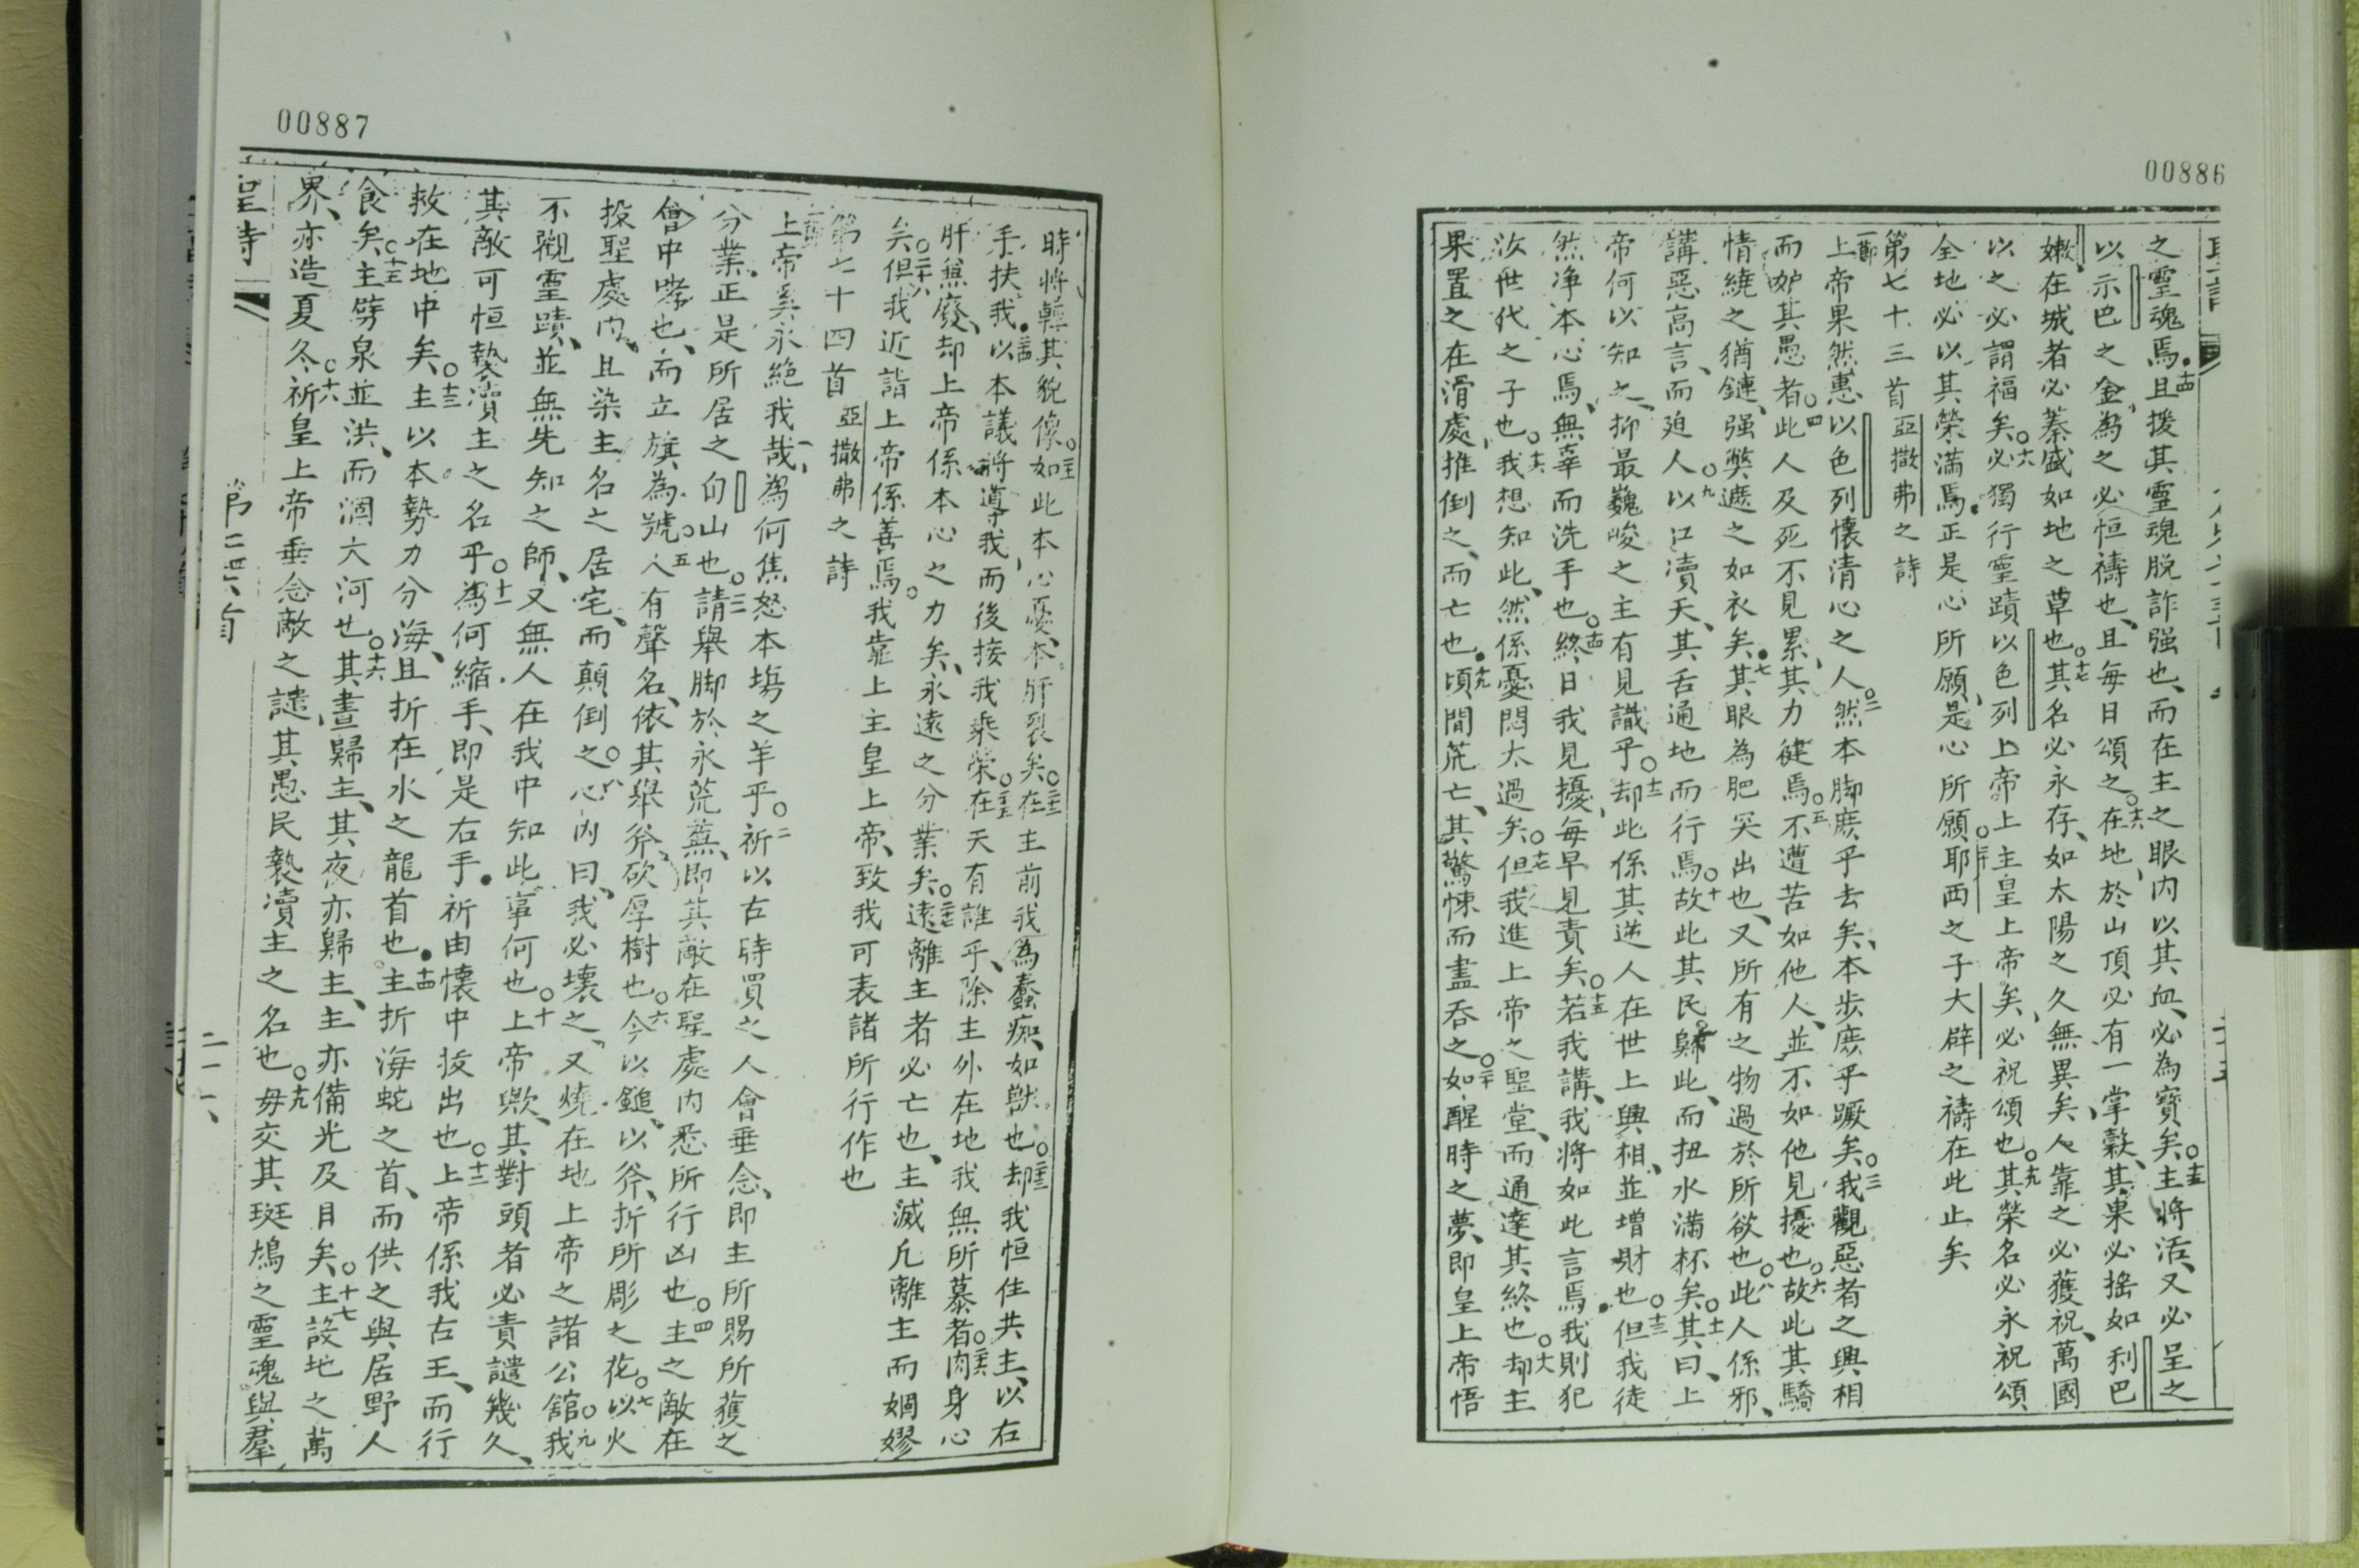 00886
之靈魂焉●十四且援其靈魂脫詐强也、而在主之眼内以其血、必為寶矣○十五主將活、又必呈之
以示巴之金、為之必恒禱也、且每日頌之○十六在地、於山頂必有一掌穀、其果必搖如利巴
嫩、在城者必蓁盛如地之草也○十七其名必永存、如太陽之久無異矣、人靠之必獲祝、萬國
以之必謂福矣○十八必獨行靈蹟以色列上帝上主皇上帝矣、必祝頌也○十九其榮名必永祝頌
全地必以其榮滿焉●正是心所願、是心所願○二十耶西之子大辟之禱在此止矣
第七十三首亞撒弗之詩
一節上帝果然惠以色列懷清心之人○二然本脚庶乎去矣、本步庶乎蹶矣○三我觀惡者之興相
而妒其愚者○四此人及死不見累、其力健焉○五不遭苦如他人、並不如他見擾也○六故此其驕
情繞之猶鏈、强弊遮之如衣矣●七其眼為肥突出也、又所有之物過於所欲也○八此人係邪、
講惡高言、而迫人○九以口瀆天、其舌通地而行焉○十故此其民歸此、而扭水滿杯矣○十一其曰、上
帝何以知之、抑最巍峻之主有見識乎○十二却此係其逆人在世上興相、並增財也○十三但我徒
然净本心焉、無辜而洗手也○十四終日我見擾、每早見責矣○十五若我講、我將如此言焉●我則犯
汝世代之子也○十六我想知此、然係憂悶太過矣○十七但我進上帝之聖堂、而通達其終也○十八却主
果置之在滑處、推倒之、而亡也●十九頃間荒亡、其驚悚而盡吞之○二十如醒時之夢、即皇上帝悟
00887
時將轉其貌像○二十一如此本心憂、本肝裂矣○二十二在主前我為蠢痴、如獸也○二十三却我恒住共主、以右
手扶我●二十四以本議將導我、而後接我乘榮○二十五在天有誰乎、除主外在地我無所慕者○二十六肉身心
肝無廢、却上帝係本心之力矣、永遠之分業矣○二十七遠離主者必亡也、主滅凡離主而婟嫪
矣○二十八但我近詣上帝係善焉。我靠上主皇上帝、致我可表諸所行作也
第七十四首亞撒弗之詩
一節上帝奚永絕我哉、為何焦怒本塲之羊乎○二祈以古時買之人會垂念、即主所賜所獲之
分業、正是所居之旬山也○三請舉脚於永荒蕪、即其敵在聖處内悉所行凶也○四主之敵在
會中嘹也、而立旗為號○五人有聲名、依其舉斧、砍厚樹也○六今以鎚、以斧、折所彫之花○七以火
採聖處内、且染主名之居宅、而顛倒之○八心内曰、我必壞之、又燒在地上帝之諸公舘○九我
不觀靈蹟、並無先知之師、又無人在我中知此事何也○十上帝歟、其對頭者必責譴幾久、
其敵可恒褻瀆主之名乎○十一為何縮手、即是右手●祈由懷中拔出也○十二上帝係我古王、而行
救在地中矣○十三主以本勢力分海、且折在水之龍首也●十四主折海蛇之首、而供之與居野人
食矣○十五主劈泉並洪、而涸大河也○十六其晝歸主、其夜亦歸主、主亦備光及月矣○十七主設地之萬
界、亦造夏冬○十八祈皇上帝垂念敵之讉、其愚民褻瀆主之名也○十九毋交其斑鳩之靈魂與羣
聖詩